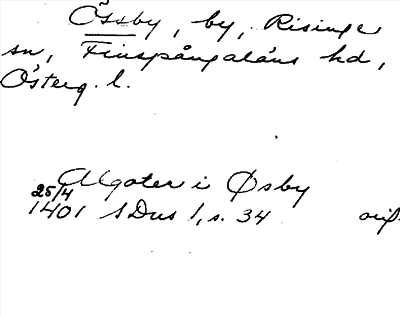 Össby, by, Risinge
sn, Finspångaläns hd,
Österg. l.
Algoter i Øsby
25/4
1401 SDns 1, s. 34 orig.